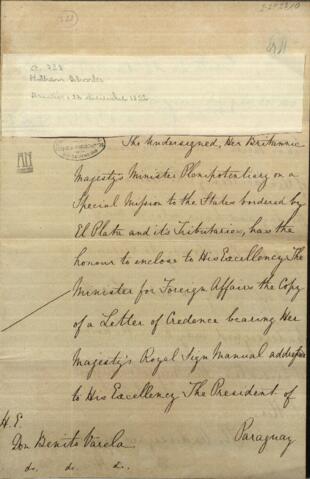 The Undersigned, Her Britannic
Majesty's Minister Plenipotentiary on a
Special Mission to the States bordered by
El Plata and its Tributaries, has the
honour to enclose to His Excellency The
Minister for Foreign Affairs the Copy
of a Letter of Credence bearing Her
Majesty's Royal Sign Manual addressed
to His Excellency The President of
Paraguay
H. E.
Don Benito Varela
do. do.